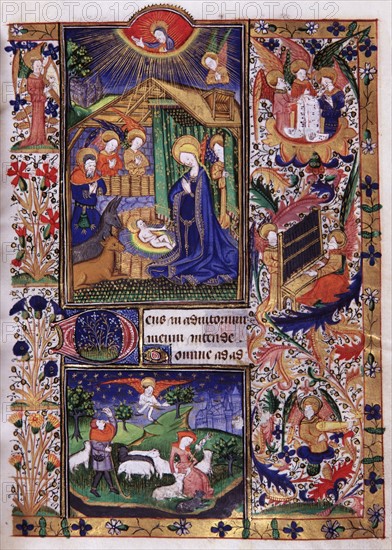 Deus in adiutorium
meum intende.
Domine ad ad